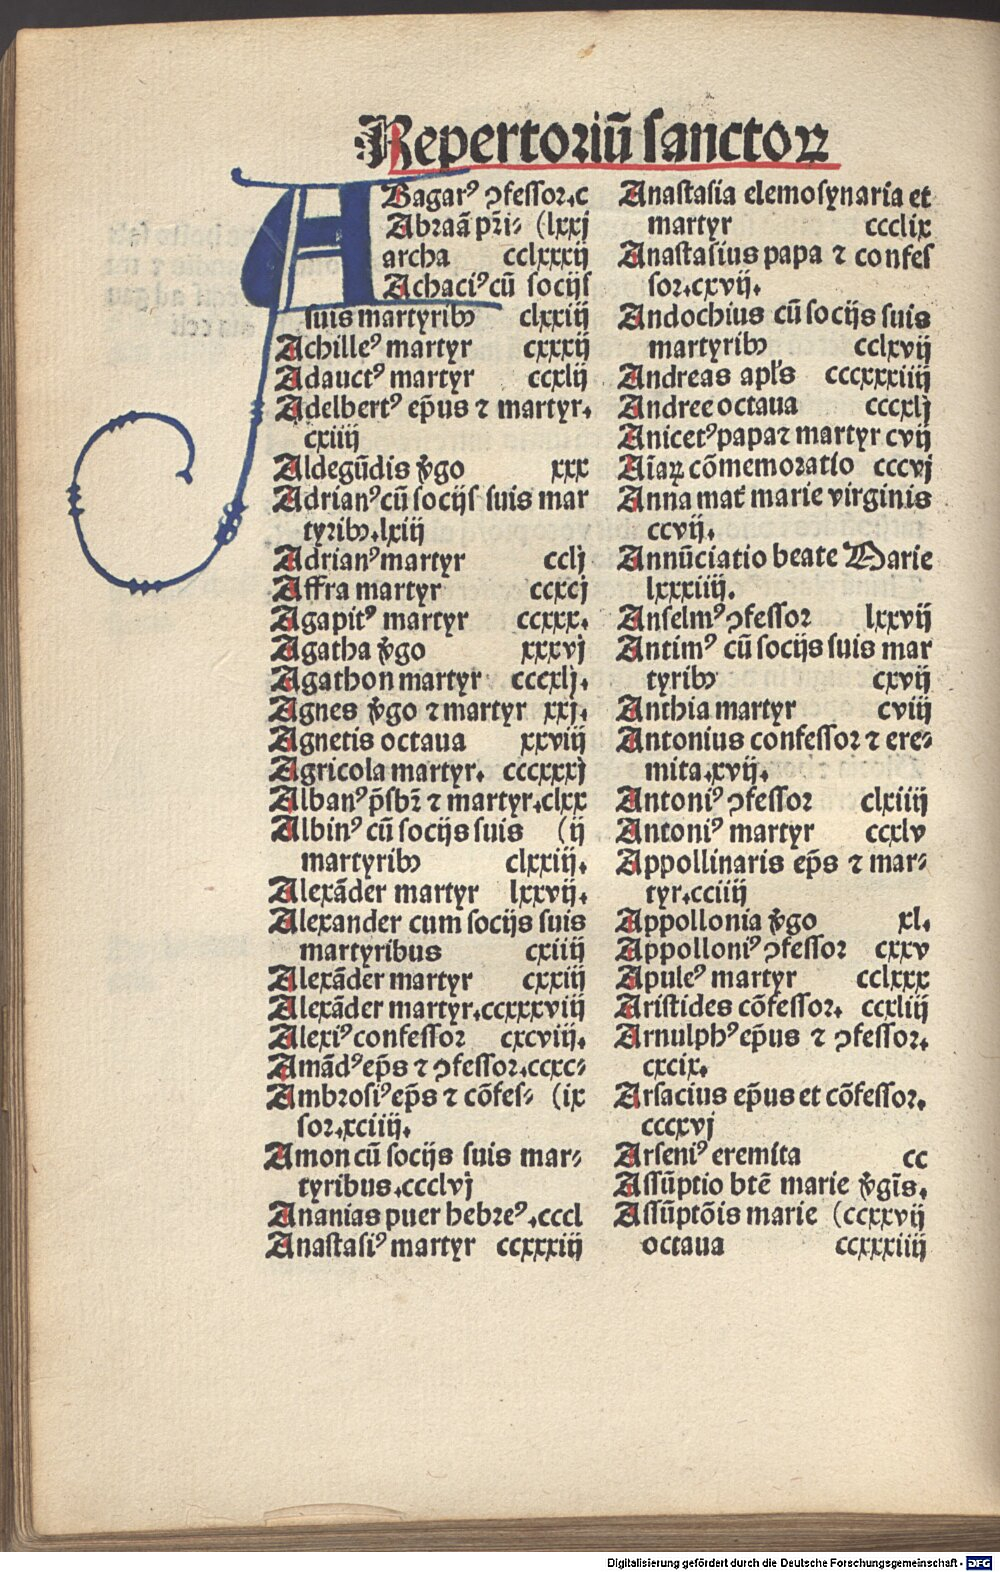 Repertoriū sanctoꝝ
ABagarꝰ ꝯfessor.c
Abraā pr̄i⸗ (lxxj
archa cclxxxij
Achaciꝰ cū socijs
suis martyribꝫ clxxiij
Achilleꝰ martyr cxxxij
Adauctꝰ martyr ccxlij
Adelbertꝰ ep̄us ⁊ martyr.
cxiiij
Aldegūdis v̄go xxx
Adrianꝰ cū socijs suis mar
tyribꝫ.lxiij
Adrianꝰ martyr cclj
Affra martyr ccxcj
Agapitꝰ martyr ccxxx.
Agatha v̄go xxxvj
Agathon martyr cccxlj.
Agnes v̄go ⁊ martyr xxj.
Agnetis octaua xxviij
Agricola martyr. cccxxxj
Albanꝰ p̄sbr̄ ⁊ martyr.clxx
Albinꝰ cū socijs suis (ij
martyribꝫ clxxiij.
Alexāder martyr lxxvij.
Alexander cum socijs suis
martyribus cxiiij
Alexāder martyr cxxiij
Alexāder martyr.ccxxxviij
Alexiꝰ confessor cxcviij.
Amādꝰ ep̄s ⁊ ꝯfessor.ccxc⸗
Ambrosiꝰ ep̄s ⁊ cōfes⸗ (ix
sor.xciiij.
Amon cū socijs suis mar⸗
tyribus.ccclvj
Ananias puer hebreꝰ.cccl
Anastasiꝰ martyr ccxxxiij
Anastasia elemosynaria et
martyr ccclix
Anastasius papa ⁊ confes
sor.cxvij.
Andochius cū socijs suis
martyribꝫ cclxvij
Andreas apl's cccxxxiiij
Andree octaua cccxlj
Anicetꝰ papa ⁊ martyr cvij
Aīaꝝ cōmemoratio cccvj
Anna mat̄ marie virginis
ccvij.
Annūciatio beate Marie
lxxxiiij.
Anselmꝰ ꝯfessor lxxvij
Antimꝰ cū socijs suis mar
tyribꝫ cxvij
Anthia martyr cviij
Antonius confessor ⁊ ere⸗
mita.xvij.
Antoniꝰ ꝯfessor clxiiij
Antoniꝰ martyr ccxlv
Appollinaris ep̄s ⁊ mar⸗
tyr.cciiij
Appollonia v̄go xl.
Appolloniꝰ ꝯfessor cxxv
Apuleꝰ martyr cclxxx
Aristides cōfessor. ccxliij
Arnulphꝰ ep̄us ⁊ ꝯfessor.
cxcix.
Arsacius ep̄us et cōfessor.
cccxvj
Arseniꝰ eremita cc
Assūptio btē marie v̄gīs.
Assūptōis marie (ccxxvij
octaua ccxxxiiij
Digitalisierung gefördert durch die Deutsche Forschungsgemeinschaft - DFG